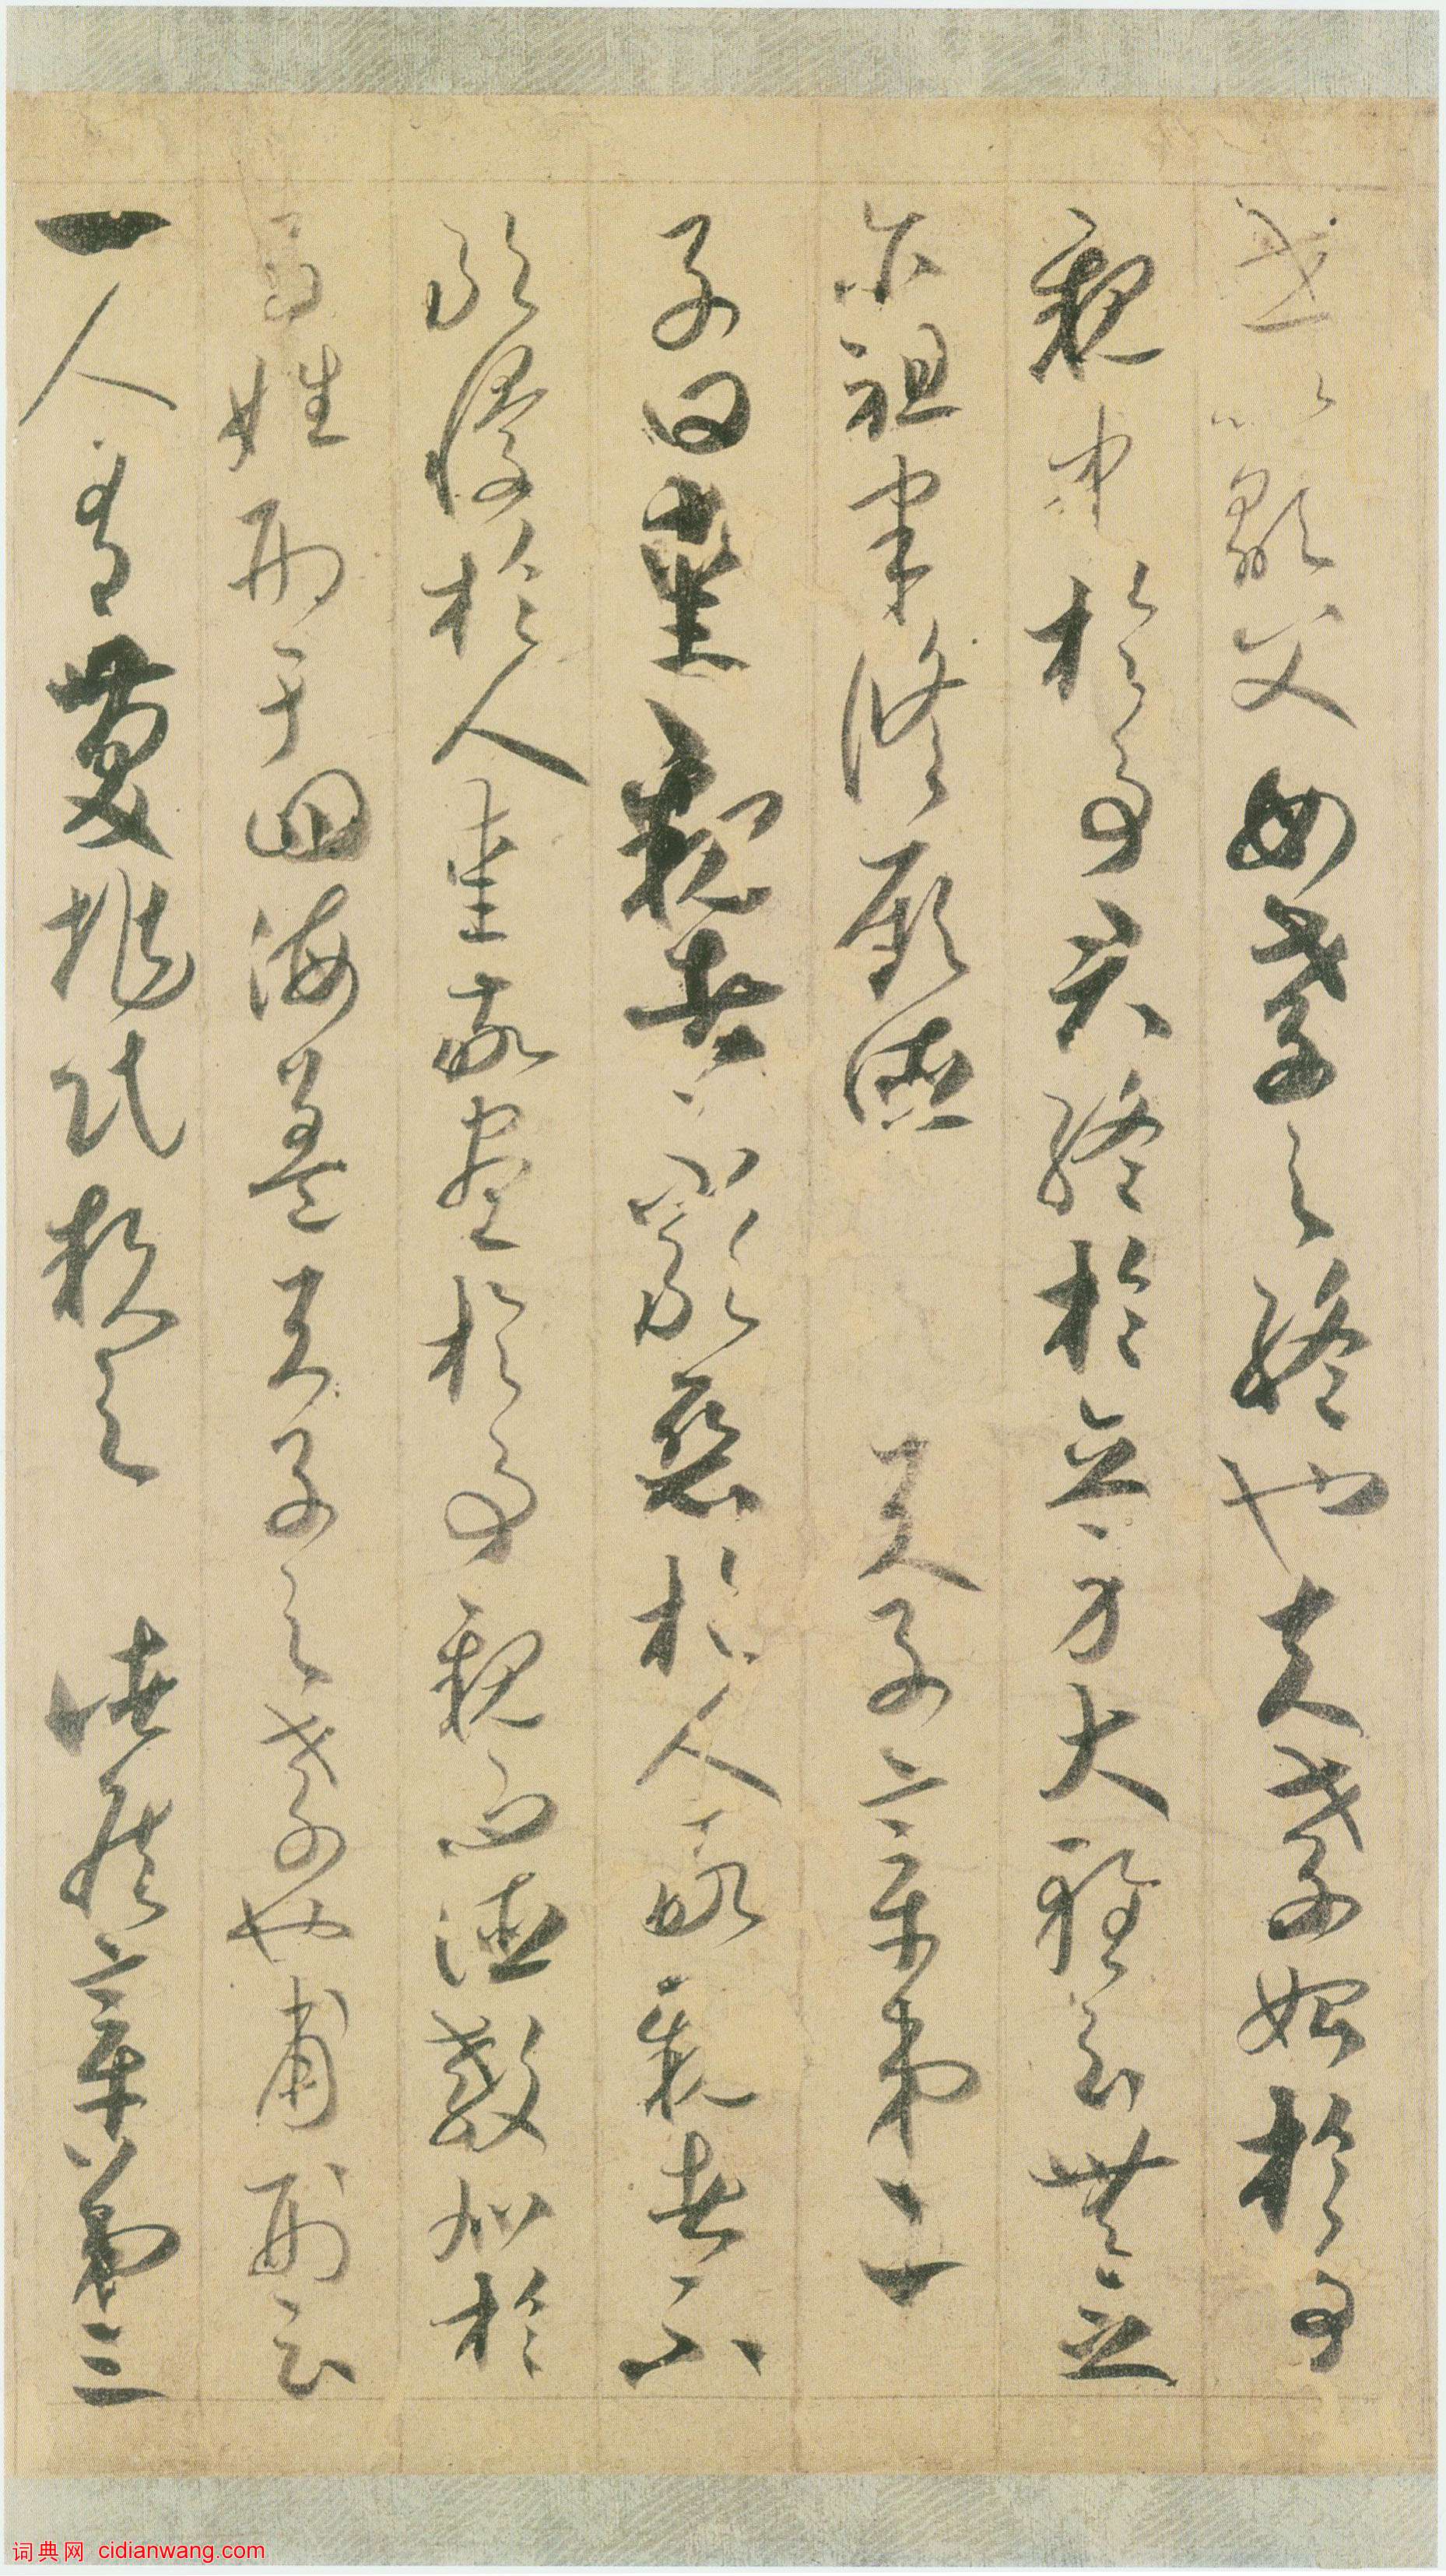 世以顯父母孝之終也夫孝始於事
親中於事君終於立身大雅云無念
尒祖聿脩厥德　天子章第二
子曰愛親者不敢惡於人敬親者不
敢慢於人愛敬盡於事親而德教加於
百姓刑于四海蓋天子之孝也甫刑云
一人有慶兆民賴之　諸侯章第三
词典网 cidianwang.com